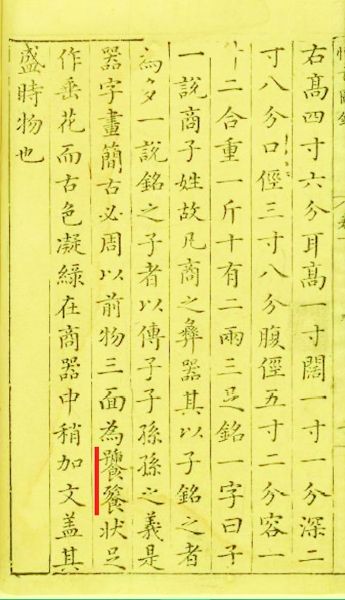 右髙四寸六分耳髙一寸闊一寸一分深二
寸八分口徑三寸八分腹徑五寸二分容一
升二合重一斤十有二兩三足銘一字曰子
一說商子姓故凡商之彝器其以子銘之者
為多一說銘之子者以傳子子孫孫之義是
器字畫簡古必周以前物三面為饕餮狀足
作垂花而古色凝綠在商器中稍加文盖其
盛時物也